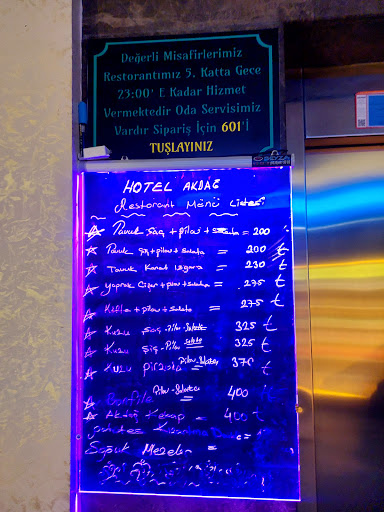 Değerli Misafirlerimiz
Restorantımız 5. Katta Gece
23:00' E Kadar Hizmet
Vermektedir Oda Servisimiz
Vardır Sipariş İçin 601'İ
TUŞLAYINIZ
BEYZA
HOTEL AKDAĞ
Restorant Menü Listesi
Tavuk Saç + pilav + salata = 200
Tavuk Şiş + pilav + salata = 200 t
Tavuk Kanat Izgara = 230 t
Yaprak Ciğer + pilav + salata = 275 t
Köfte + pilav + salata = 275 t
Kuzu Saç - Pilav - Salata 325 t
Kuzu Şiş - Pilav salata 325 t
Kuzu Pirzola Pilav - Salata 370 t
Bonfile Pilav - Salata 400 t
Akdağ Kebap = 400 t
Soğuk Mezeler =